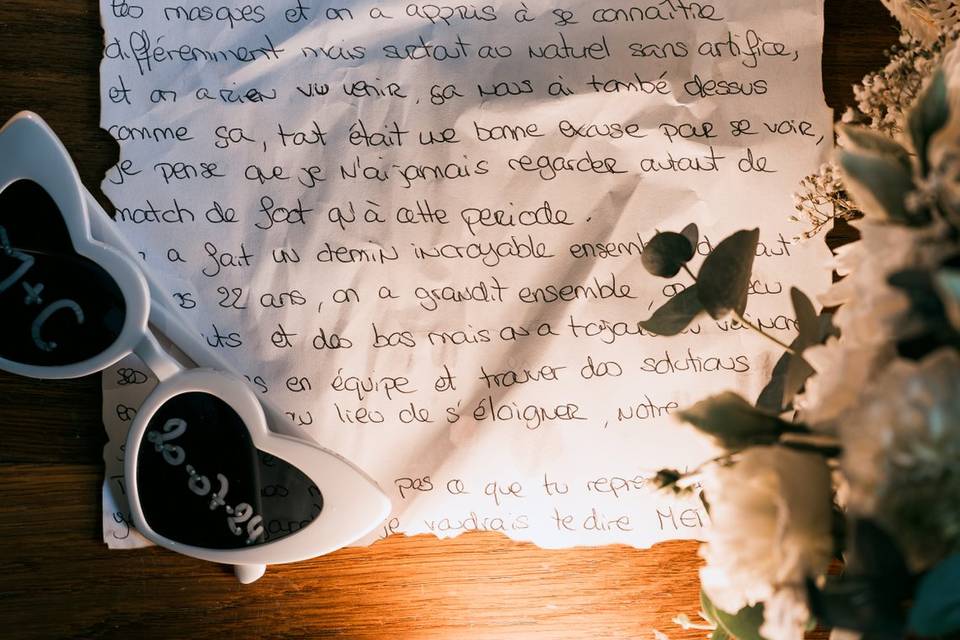 masques et on a appris à se connaître
différemment mais surtout au naturel sans artifice,
et on a rien vu venir, ça nous ai tombé dessus
comme ça, tout était une bonne excuse pour se voir,
je pense que je n'ai jamais regarder autant de
match de foot qu'à cette periode.
a fait un chemin incroyable
22 ans, on a grandit ensemble,
et des bas mais on a
en équipe et trouver des solutions
lieu de s'éloigner, notre
pas ce que tu
je voudrais te dire
+ C
20-07-24